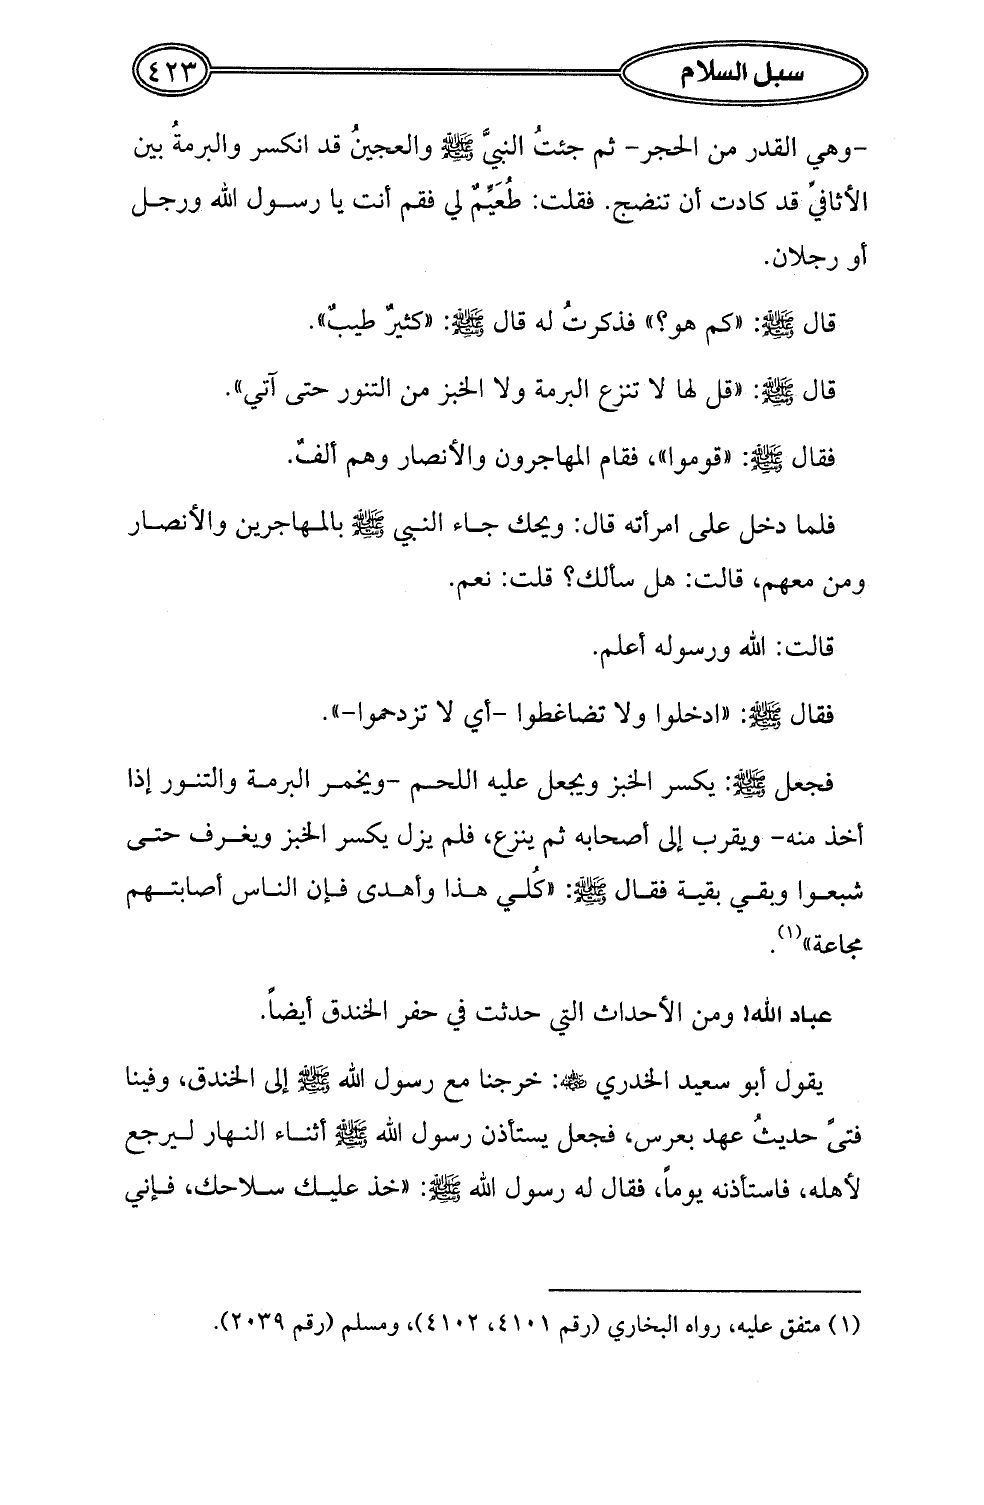 سبل السلام ٤٢٣
-وهي القدر من الحجر- ثم جئتُ النبيَّ ﷺ والعجينُ قد انكسر والبرمةُ بين
الأثافيِّ قد كادت أن تنضج. فقلت: طُعَيِّمٌ لي فقم أنت يا رسول الله ورجل
أو رجلان.
قال ﷺ: «كم هو؟» فذكرتُ له قال ﷺ: «كثيرٌ طيبٌ».
قال ﷺ: «قل لها لا تنزع البرمة ولا الخبز من التنور حتى آتي».
فقال ﷺ: «قوموا»، فقام المهاجرون والأنصار وهم ألفٌ.
فلما دخل على امرأته قال: ويحك جاء النبي ﷺ بالمهاجرين والأنصار
ومن معهم، قالت: هل سألك؟ قلت: نعم.
قالت: الله ورسوله أعلم.
فقال ﷺ: «ادخلوا ولا تضاغطوا -أي لا تزدحموا-».
فجعل ﷺ: يكسر الخبز ويجعل عليه اللحم -ويخمر البرمة والتنور إذا
أخذ منه- ويقرب إلى أصحابه ثم ينزع، فلم يزل يكسر الخبز ويغرف حتى
شبعوا وبقي بقية فقال ﷺ: «كُلي هذا وأهدى فإن الناس أصابتهم
مجاعة»(١).
عباد الله! ومن الأحداث التي حدثت في حفر الخندق أيضاً.
يقول أبو سعيد الخدري رضي الله عنه: خرجنا مع رسول الله ﷺ إلى الخندق، وفينا
فتىً حديثُ عهد بعرس، فجعل يستأذن رسول الله ﷺ أثناء النهار ليرجع
لأهله، فاستأذنه يوماً، فقال له رسول الله ﷺ: «خذ عليك سلاحك، فإني
(١) متفق عليه، رواه البخاري (رقم ٤١٠١، ٤١٠٢)، ومسلم (رقم ٢٠٣٩).